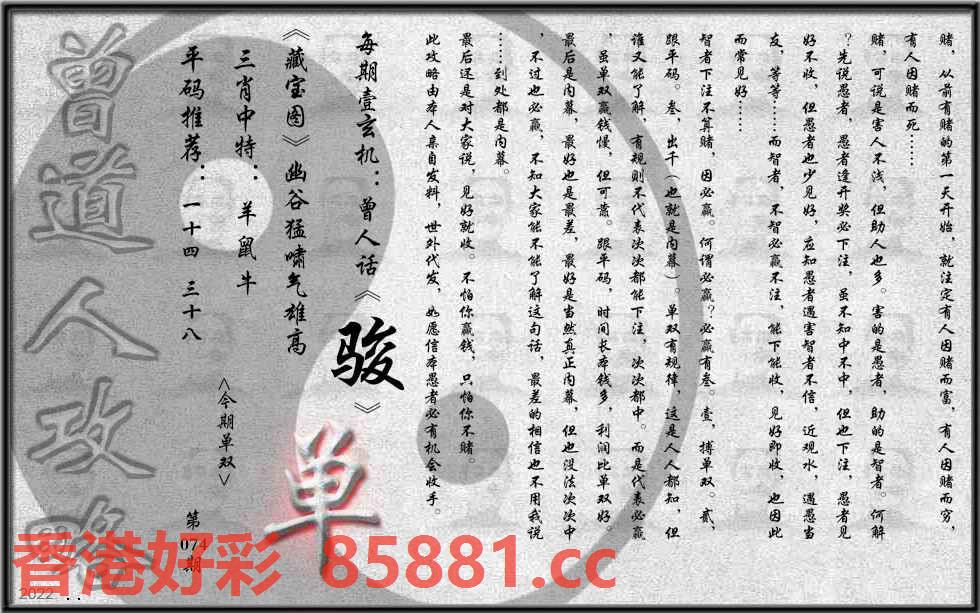 赌，从前有赌的第一天开始，就注定有人因赌而富，有人因赌而穷，
有人因赌而死……
赌，可说是害人不浅，但助人也多。害的是愚者，助的是智者。何解
？先说愚者，愚者逢开奖必下注，虽不知中不中，但也下注，愚者见
好不收，但愚者也少见好，应知愚者遇害智者不信，近观水，遇愚当
友，等等……而智者，不智必赢不注，能下能收，见好即收，也因此
而常见好……
智者下注不算赌，因必赢。何谓必赢？必赢有叁。壹，搏单双。贰，
跟平码。叁，出千（也就是内幕）。单双有规律，这是人人都知，但
谁又能了解，有规则不代表次次都能下注，次次都中。而是代表必赢
，虽单双赢钱慢，但可靠。跟平码，时间长本钱多，利润比单双好。
最后是内幕，最好也是最差，最好是当然真正内幕，但也没法次次中
，不过也必赢，不知大家能不能了解这句话，最差的相信也不用我说
……到处都是内幕。
最后还是对大家说，见好就收。不怕你赢钱，只怕你不赌。
此攻略由本人亲自发料，世外代发，如愿信本愚者必有机会收手。
每期壹玄机：曾人话《骏》
《藏宝图》幽谷猛啸气雄高
单
三肖中特：羊鼠牛
<今期单双>
平码推荐：一十四 三十八
第074期
曾道人攻略
香港好彩 85881.cc
2022